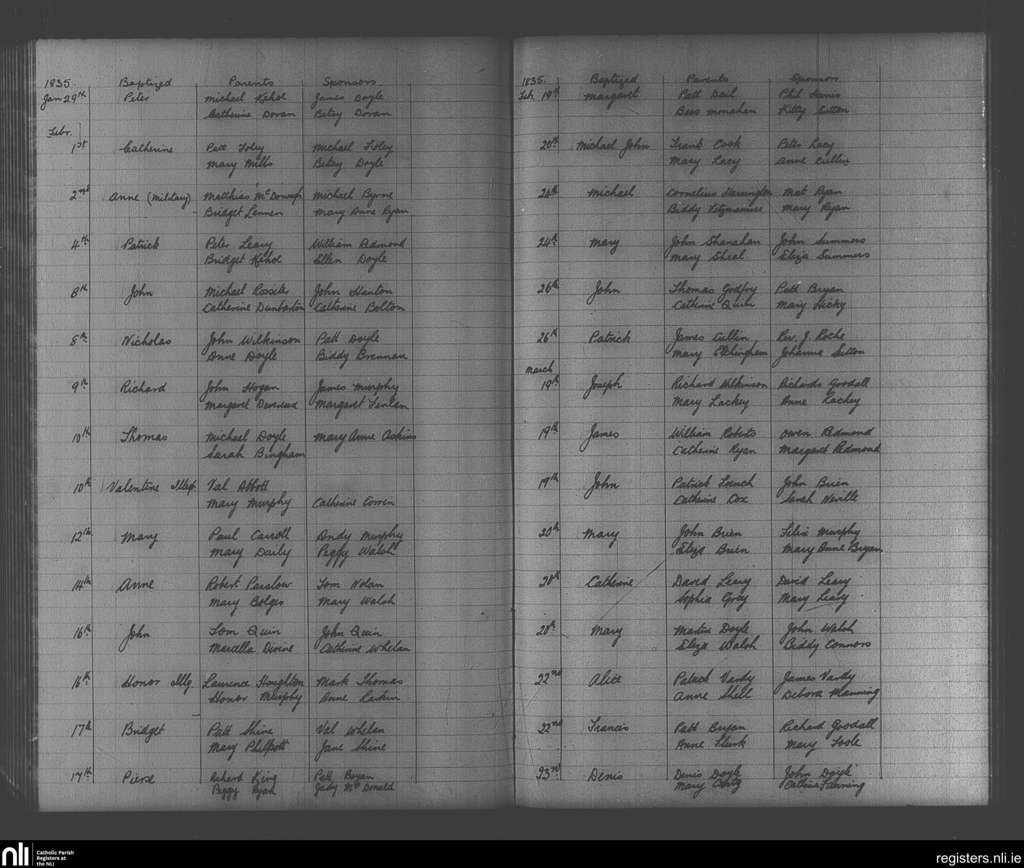 1835. Baptized Parents Sponsors
Jan 29th Peter Michael Kehoe James Doyle
Catherine Doran Betsy Doran
Febr.
1st Catherine Patt Foley Michael Foley
Mary Mills Betsy Doyle
2nd Anne (Military) Matthias Michael Byrne
Bridget Lennon Mary Anne Ryan
4th Patrick Peter Leary William Redmond
Bridget Kehoe Ellen Doyle
8th John Michael Rossiter John Hanton
Catherine Catherine Bolton
8th Nicholas John Wilkinson Patt Doyle
Anne Doyle Biddy Brennan
9th Richard John Hogan James Murphy
Margaret Devereux Margaret
10th Thomas Michael Doyle Mary Anne Askins
Sarah Bingham
10th Valentine Illeg. Val Abbott
Mary Murphy Catherine
12th Mary Paul Carroll Andy Murphy
Mary Daily Peggy Walsh
14th Anne Robert Parslow Tom Nolan
Mary Bolger Mary Walsh
16th John Tom Quin John Quin
Marcella Divine Catherine Whelan
16th Honor Illg. Laurence Houghton Mark Thomas
Honor Murphy Anne Larkin
17th Bridget Patt Shine Val Whelan
Mary Philpott Jane Shine
17th Pierce Richard King Patt Bryan
Peggy Ryan Judy McDonald
1835. Baptized Parents Sponsors
Feb. 19th Margaret Patt Dail Phil
Bess Monahan Kitty Sutton
20th Michael John Frank Cook Peter Lacy
Mary Lacy Anne Cullin
24th Michael Cornelius Harrington Mat Ryan
Biddy Fitzmaurice Mary Ryan
24th Mary John Shanahan John Summers
Mary Sheal Eliza Summers
26th John Thomas Godfry Patt Bryan
Catherine Quin Mary Hickey
26th Patrick James Cullin Rev. J. Roche
Mary Etchingham Johanna Sutton
March
19th Joseph Richard Wilkinson Richard Goodall
Mary Lackey Anne Lackey
19th James William Roberts Owen Redmond
Catherine Ryan Margaret Redmond
19th John Patrick French John Brien
Catherine Cox Sarah Neville
20th Mary John Brien Felix Murphy
Eliza Brien Mary Anne Bryan
20th Catherine David Leary David Leary
Sophia Grey Mary Leary
20th Mary Martin Doyle John Walsh
Eliza Walsh Biddy Connors
22nd Alice Patrick Vardy James Vardy
Anne Shell Debora Manning
22nd Francis Patt Bryan Richard Goodall
Anne Mary Toole
23rd Denis Denis Doyle John Doyle
Mary Catherine Fanning
nli Catholic Parish
Registers at
the NLI
registers.nli.ie